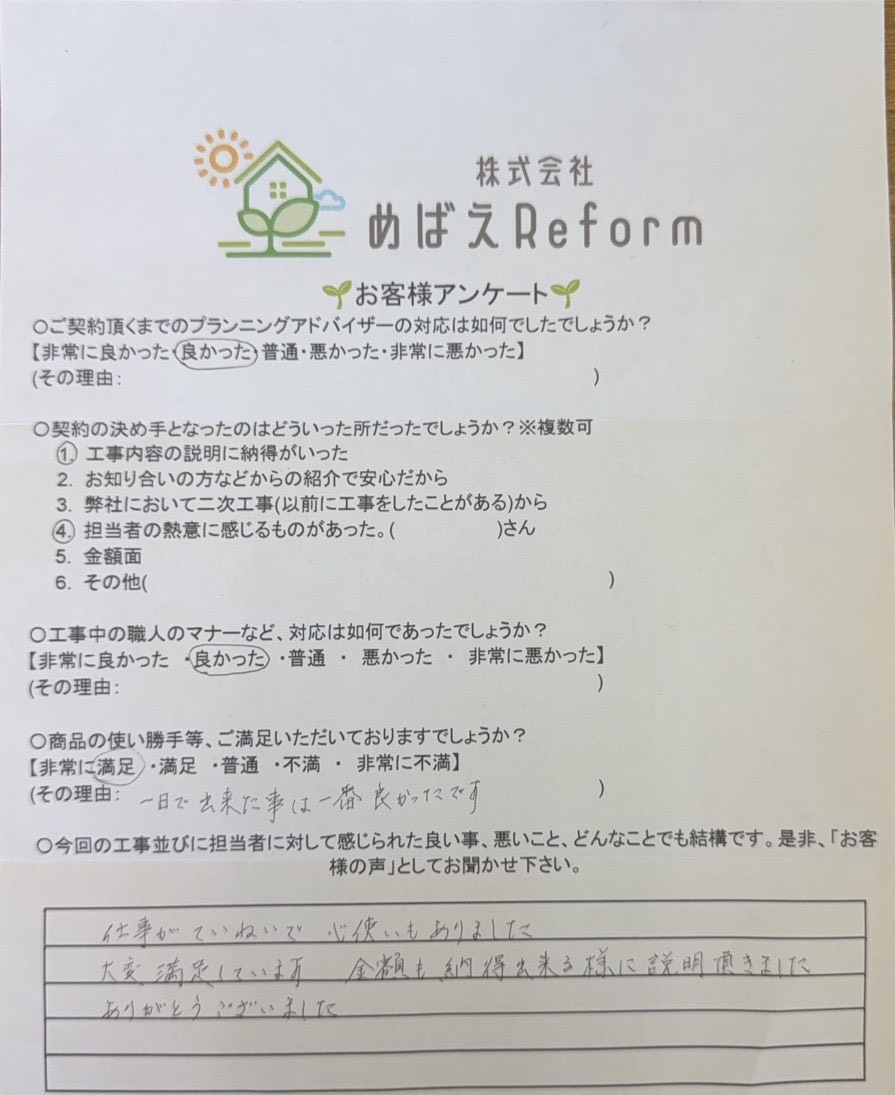 株式会社
めばえReform
お客様アンケート
○ご契約頂くまでのプランニングアドバイザーの対応は如何でしたでしょうか？
【非常に良かった・良かった・普通・悪かった・非常に悪かった】
(その理由: )
○契約の決め手となったのはどういった所だったでしょうか？※複数可
1. 工事内容の説明に納得がいった
2. お知り合いの方などからの紹介で安心だから
3. 弊社において二次工事(以前に工事をしたことがある)から
4. 担当者の熱意に感じるものがあった。( )さん
5. 金額面
6. その他( )
○工事中の職人のマナーなど、対応は如何であったでしょうか？
【非常に良かった ・良かった ・普通 ・ 悪かった ・ 非常に悪かった】
(その理由: )
○商品の使い勝手等、ご満足いただいておりますでしょうか？
【非常に満足 ・満足 ・普通 ・不満 ・ 非常に不満】
(その理由: 一日で出来た事は一番良かったです )
○今回の工事並びに担当者に対して感じられた良い事、悪いこと、どんなことでも結構です。是非、「お客
様の声」としてお聞かせ下さい。
仕事がていねいで 心使いもありました
大変満足しています 金額も納得出来る様に説明頂きました
ありがとうございました